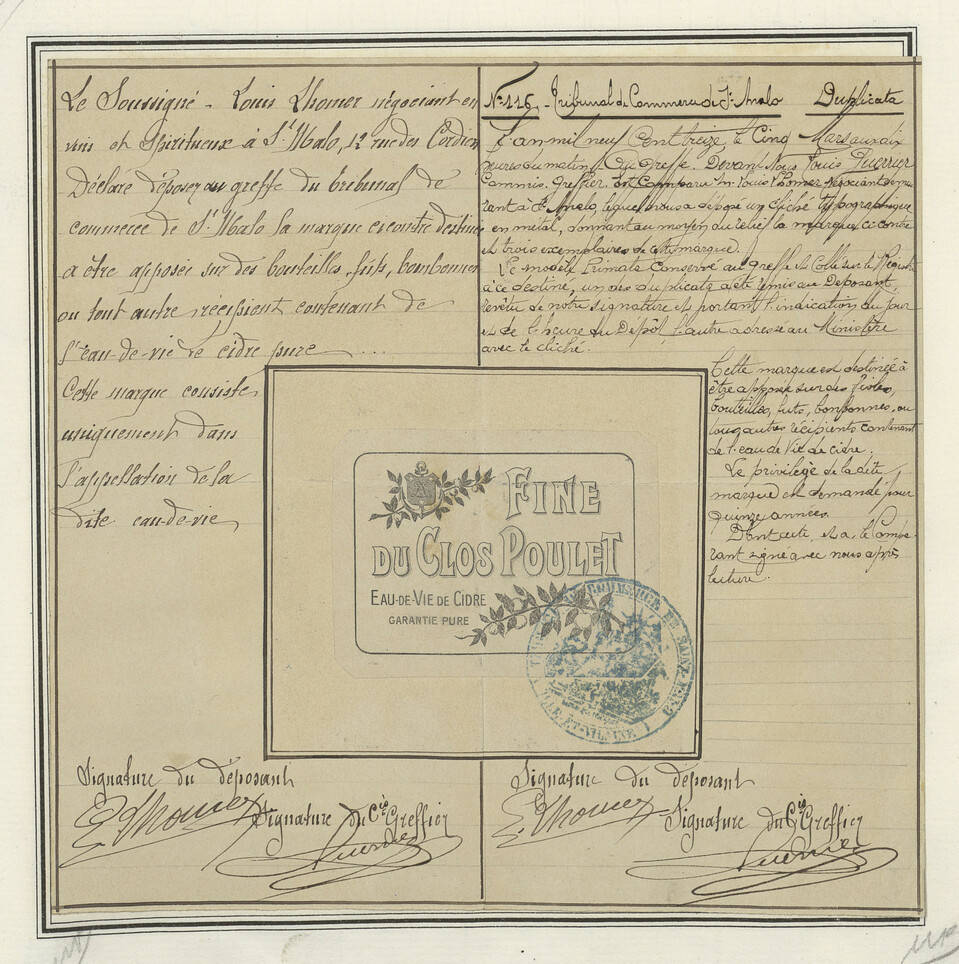 Le Soussigné - Louis Lhomer négociant en
vins et Spiritueux à St Malo, 12 rue des Cordiers
Déclare déposer au greffe du tribunal de
commerce de St Malo la marque ci contre destinée
a être apposée sur des bouteilles, fûts, bonbonnes
ou tout autre récipient contenant de
l'eau-de-vie de cidre pure ....
Cette marque consiste
uniquement dans
l'appellation de la
dite eau-de-vie
No 116 - Tribunal de Commerce de St Malo Duplicata
L'an mil neuf Cent treize, le Cinq Mars aux dix
heures du matin Au Greffe. Devant Nous Louis Guerrier
Commis. Greffier Est Comparu Mr Louis Lhomer Négociant demeu
rant à St Malo, lequel nous a déposé un cliché typographique
en métal, donnant au moyen du relief la marque ci contre
et trois exemplaires de cette marque.
Le modèle Primata Conservé au greffe et Collé sur le Registre
à ce destiné, un des duplicata a été remis au Déposant,
revêtu de notre signature et portant l'indication du jour
et de l'heure du Dépôt, l'autre adressé au Ministère
avec le cliché.
Cette marque est destinée à
être apposée sur des Fioles,
bouteilles, futs, bonbonnes, ou
tous autres récipients contenant
de l'eau de Vie de cidre.
Le privilège de la dite
marque est demandé pour
quinze années.
Dont acte, et a le Compa-
rant signé avec nous après
lecture.
FINE
DU CLOS POULET
EAU-DE-VIE DE CIDRE
GARANTIE PURE
COMMERCE DE SAINT-MALO
ILLE-ET-VILAINE
Signature du déposant
Lhomer
Signature du Cis Greffier
Guerrier
Signature du déposant
Lhomer
Signature du Cis Greffier
Guerrier